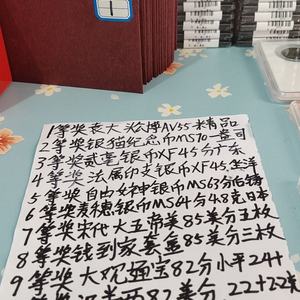 1
1等奖袁大头 AU55 精品
2等奖银猫纪念币MS70一盎司
3等奖贰毫银币XF45分广东
4等奖法属印支银币XF45.坐洋
5等奖自由女神银币MS63分
6等奖麦穗银币MS64分4.8克日本
7等奖宋代大五帝美85分五枚
8等奖钱到家套盒85美分三枚
9等奖大观通宝82分小平24+
82美分22+22